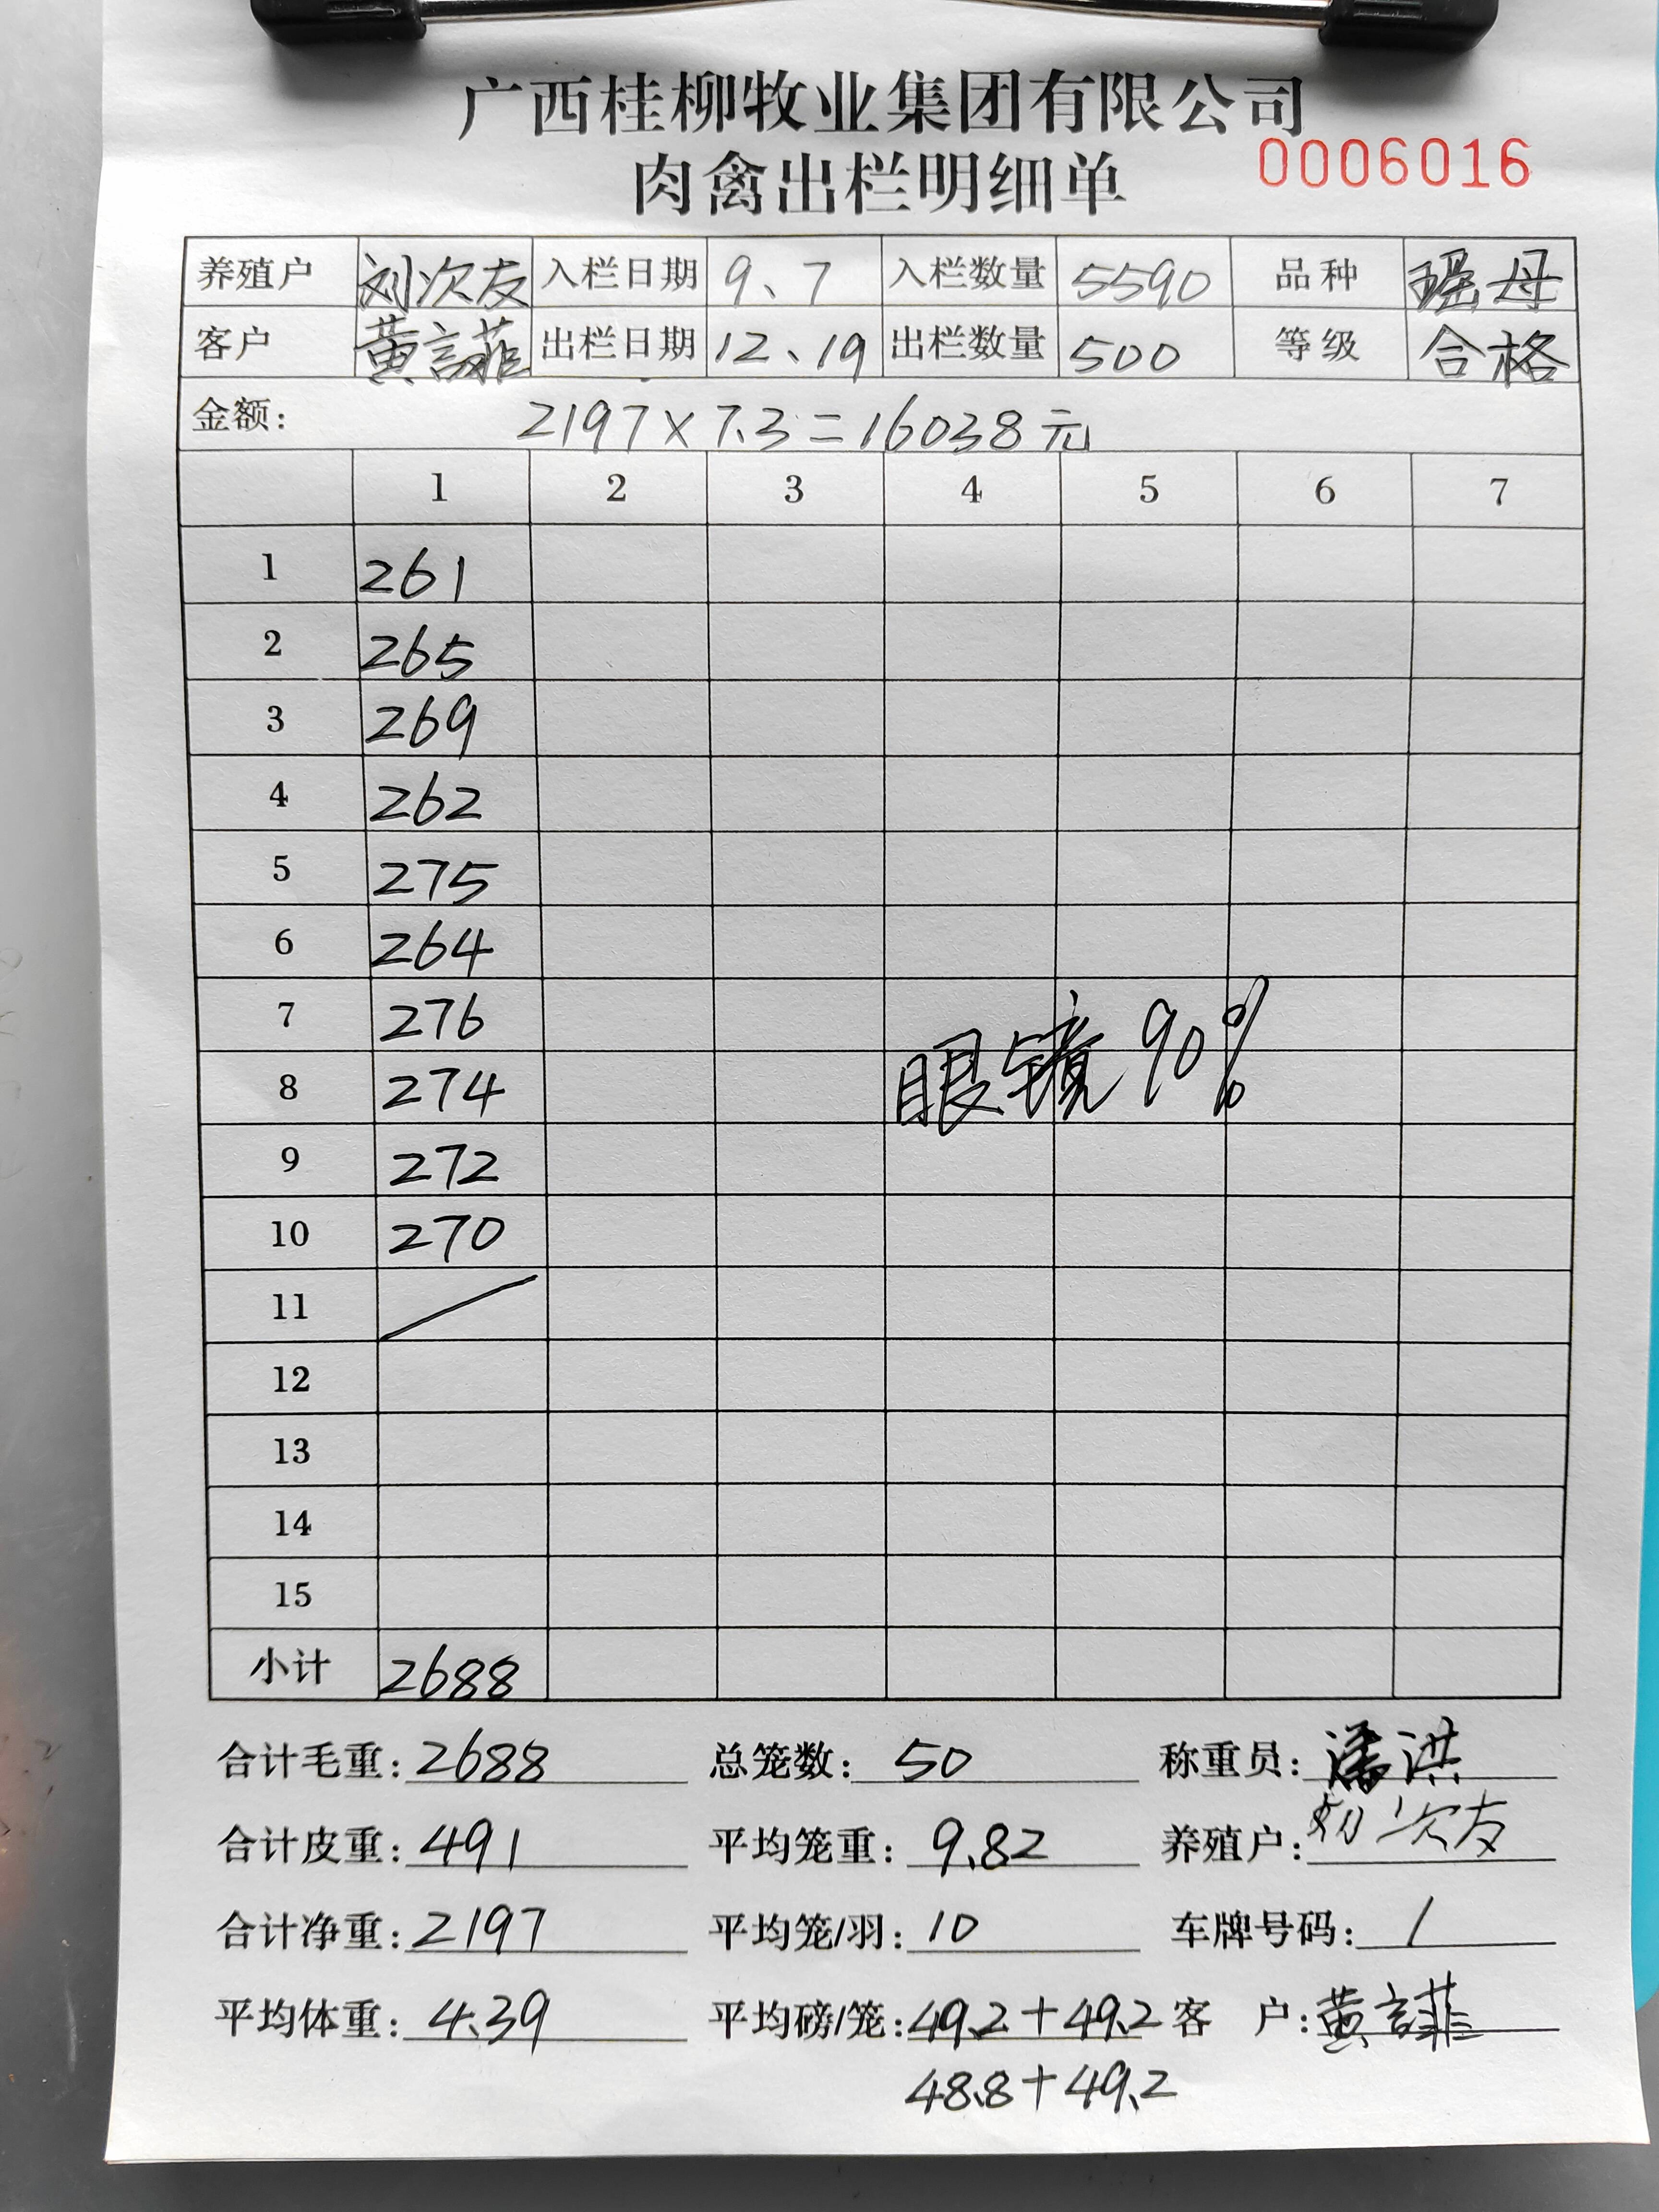 广西桂柳牧业集团有限公司
肉禽出栏明细单 0006016
养殖户 刘次友 入栏日期 9、7 入栏数量 5590 品种 瑶母
客户 黄言菲 出栏日期 12、19 出栏数量 500 等级 合格
金额: 2197×7.3=16038元
1 2 3 4 5 6 7
1 261
2 265
3 269
4 262
5 275
6 264
7 276
8 274
眼镜90%
9 272
10 270
11
12
13
14
15
小计 2688
合计毛重: 2688 总笼数: 50 称重员: 潘洪
合计皮重: 491 平均笼重: 9.82 养殖户: 刘次友
合计净重: 2197 平均笼/羽: 10 车牌号码: 1
平均体重: 4.39 平均磅/笼: 49.2+49.2 客户: 黄言菲
48.8+49.2